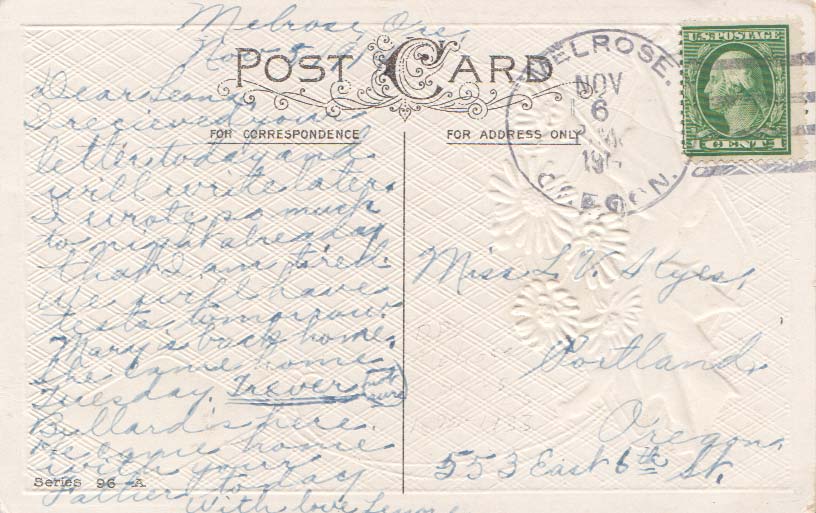 Melrose, Ore,
Nov. 5, 191
POST CARD
FOR CORRESPONDENCE
FOR ADDRESS ONLY
Dear Lena,
I recieved your
letter today and
will write later.
I wrote so much
to night already
that I am tired.
We will have
tests tomorrow.
Mary is back home.
She came home
Tuesday. Trever (not sure)
Bullard is here.
He came home
with your
Father today
With love Lenore
Series 96 A
MELROSE.
NOV
6
191
OREGON.
U.S. POSTAGE
1 CENT 1
Miss L. V. Skyes,
Portland,
Oregon,
553 East 6th St.